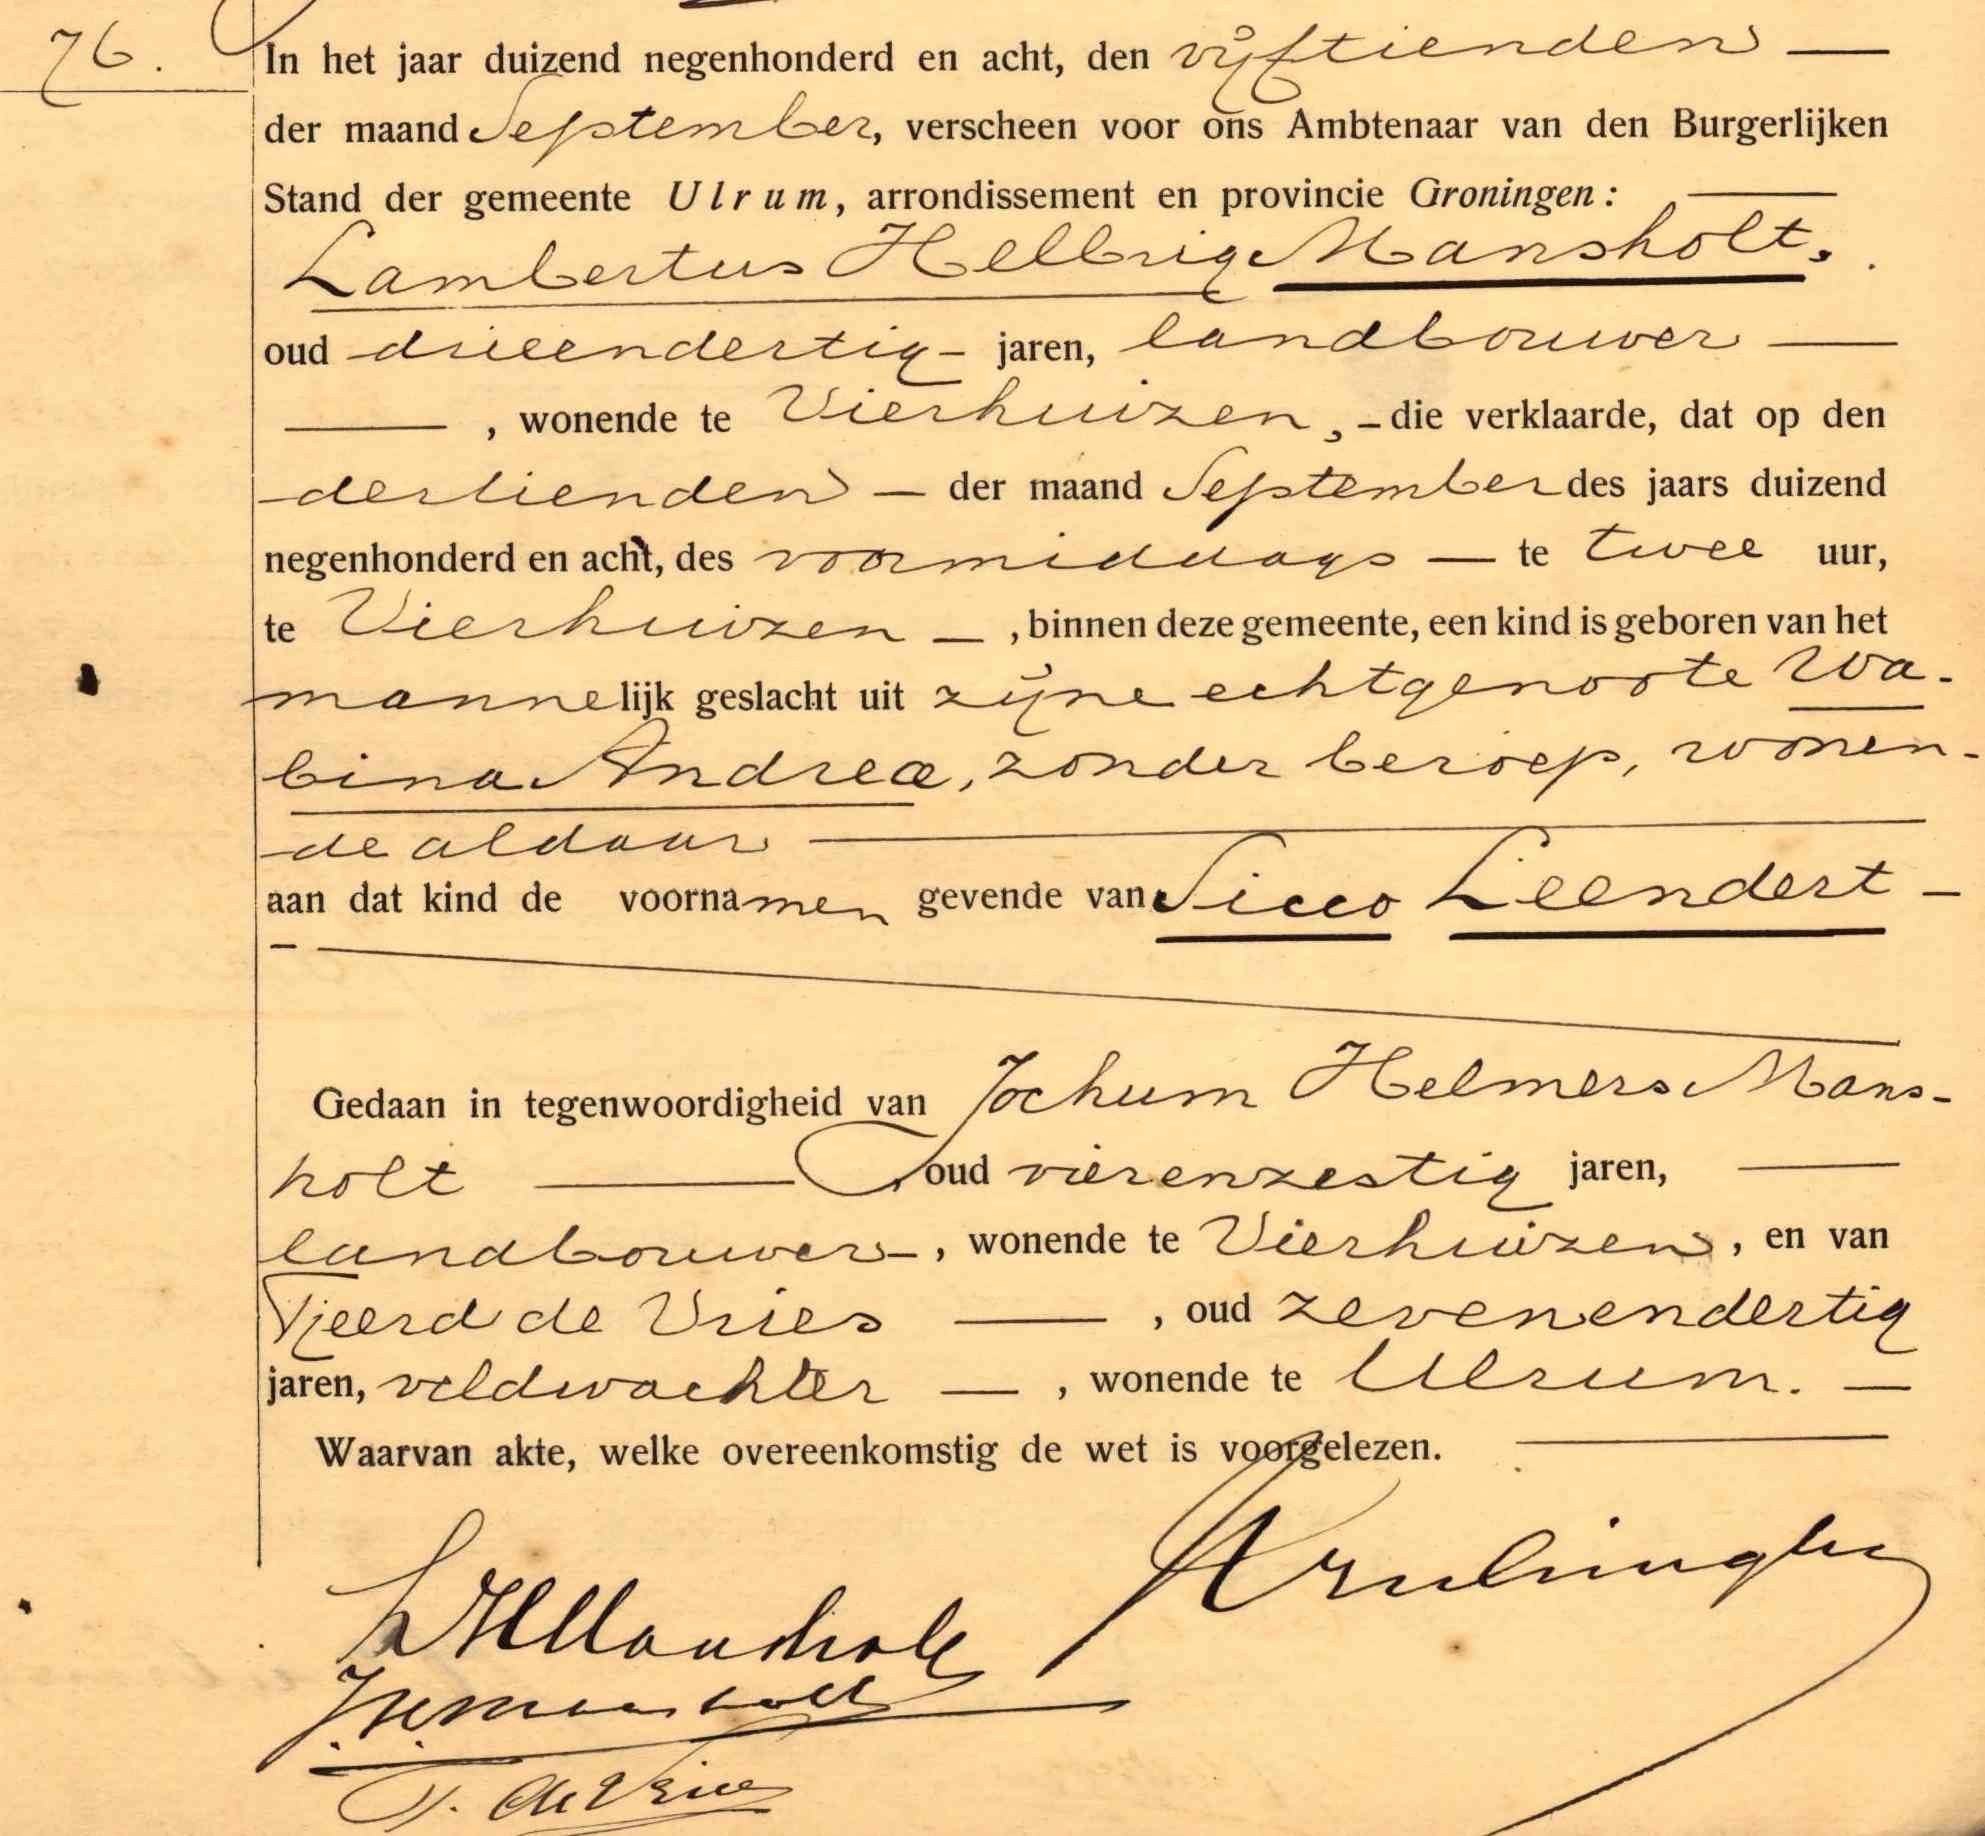 76.
In het jaar duizend negenhonderd en acht, den vijftienden —
der maand September, verscheen voor ons Ambtenaar van den Burgerlijken
Stand der gemeente Ulrum, arrondissement en provincie Groningen: —
Lambertus Helbrig Mansholt.
oud drieendertig - jaren, landbouwer —
— , wonende te Vierhuizen, - die verklaarde, dat op den
dertienden — der maand September des jaars duizend
negenhonderd en acht, des voormiddags — te twee uur,
te Vierhuizen — , binnen deze gemeente, een kind is geboren van het
mannelijk geslacht uit zijne echtgenoote Wa-
bina Andreæ, zonder beroep, wonen-
de aldaar —
aan dat kind de voornamen gevende van Sicco Leendert —
Gedaan in tegenwoordigheid van Jochum Helmers Mans-
holt — , oud vierenzestig jaren, —
landbouwer - , wonende te Vierhuizen, en van
Tjeerd de Vries — , oud zevenendertig
jaren, veldwachter — , wonende te Ulrum. —
Waarvan akte, welke overeenkomstig de wet is voorgelezen. —
LHMansholt
JHMansholt
T. de Vries